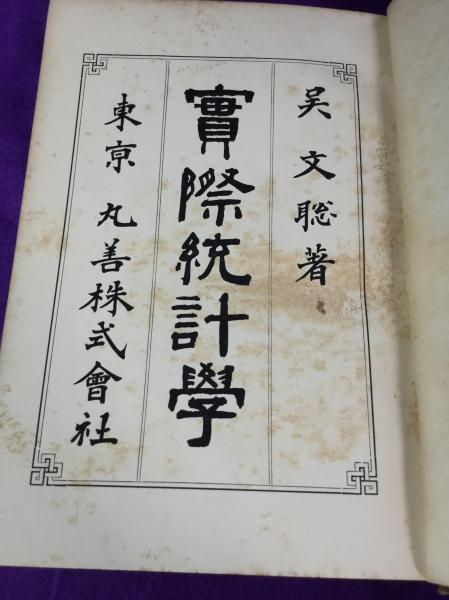 吴文聡著
實際統計學
東京 丸善株式會社